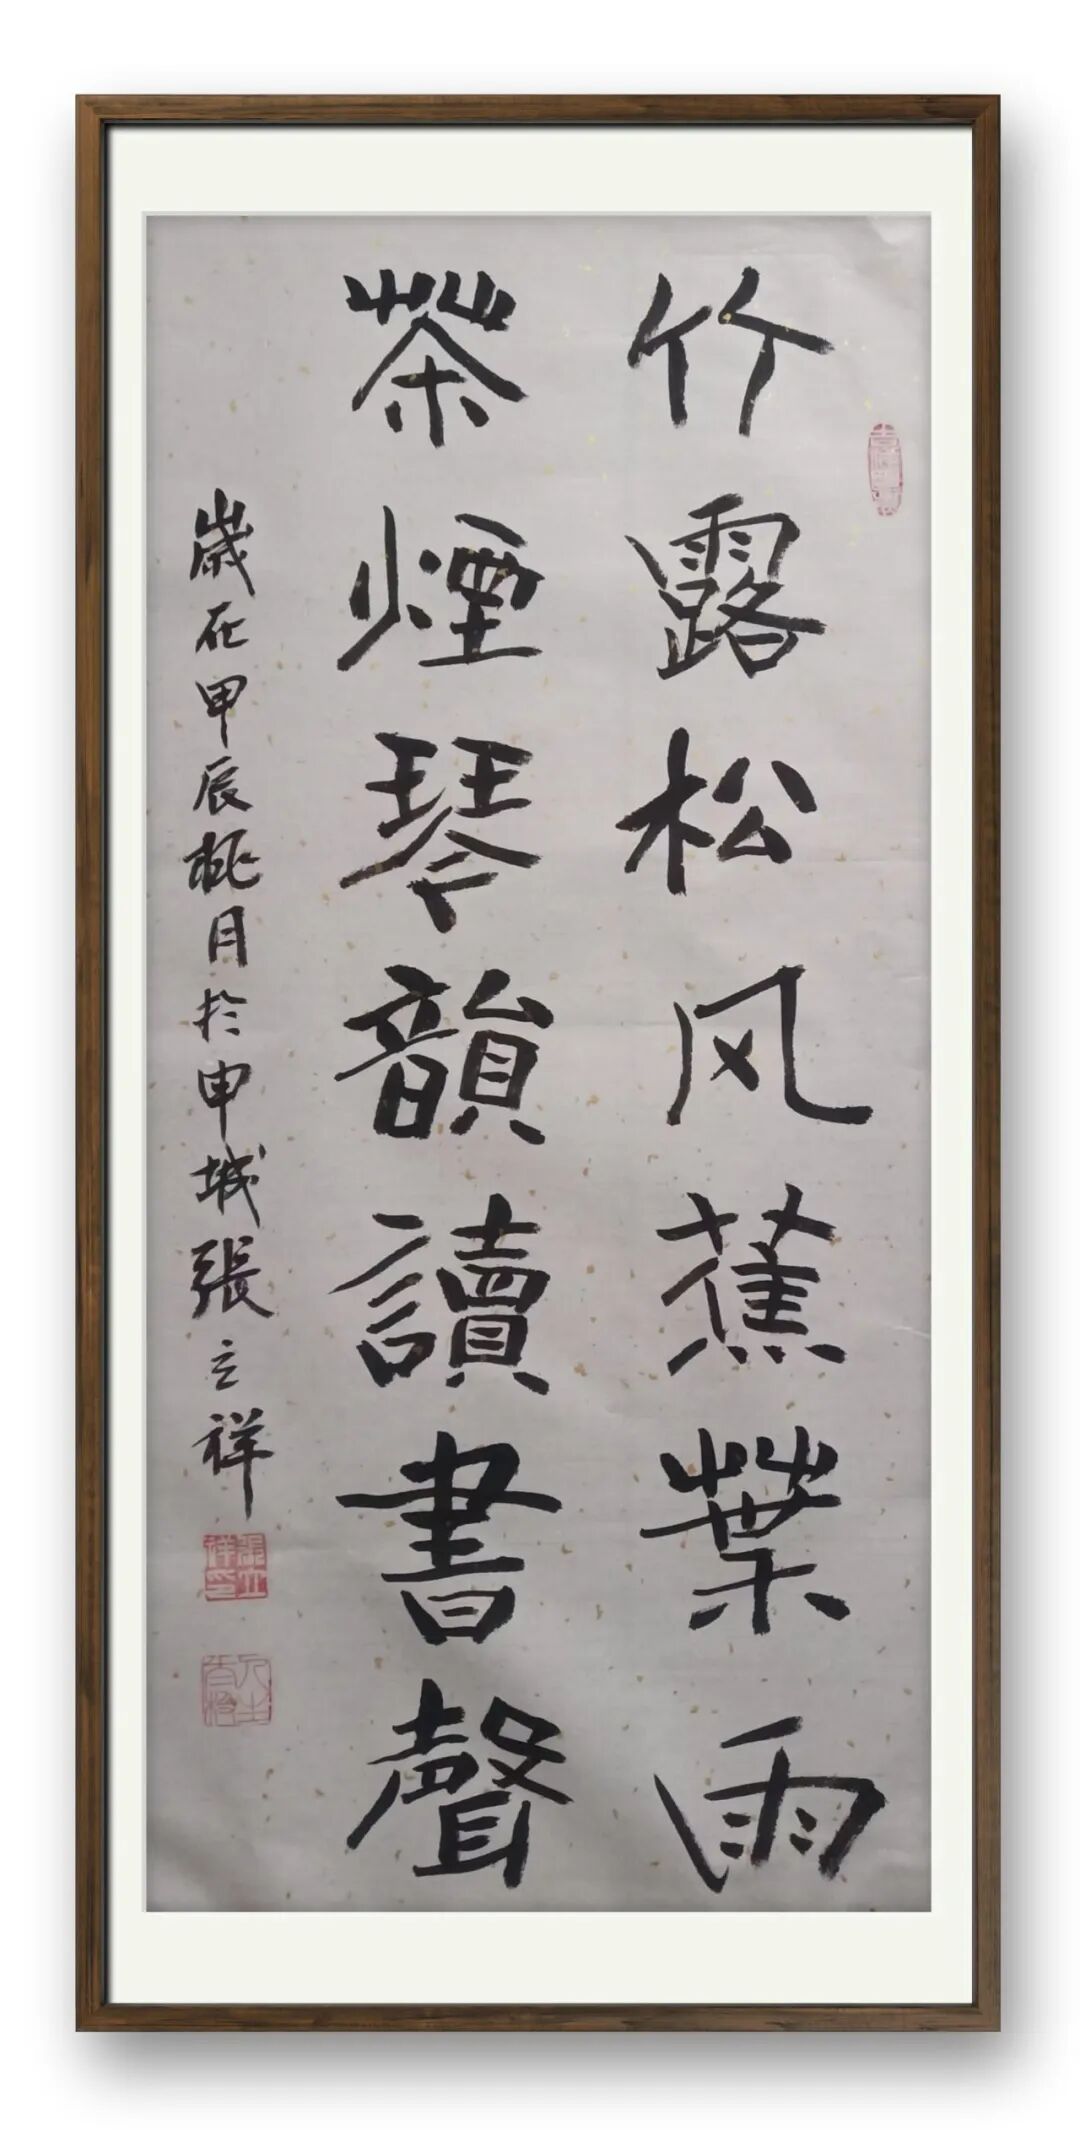 竹露松风蕉葉雨
茶煙琴韻讀書聲
歲在甲辰桃月於申城張立祥
張立祥印